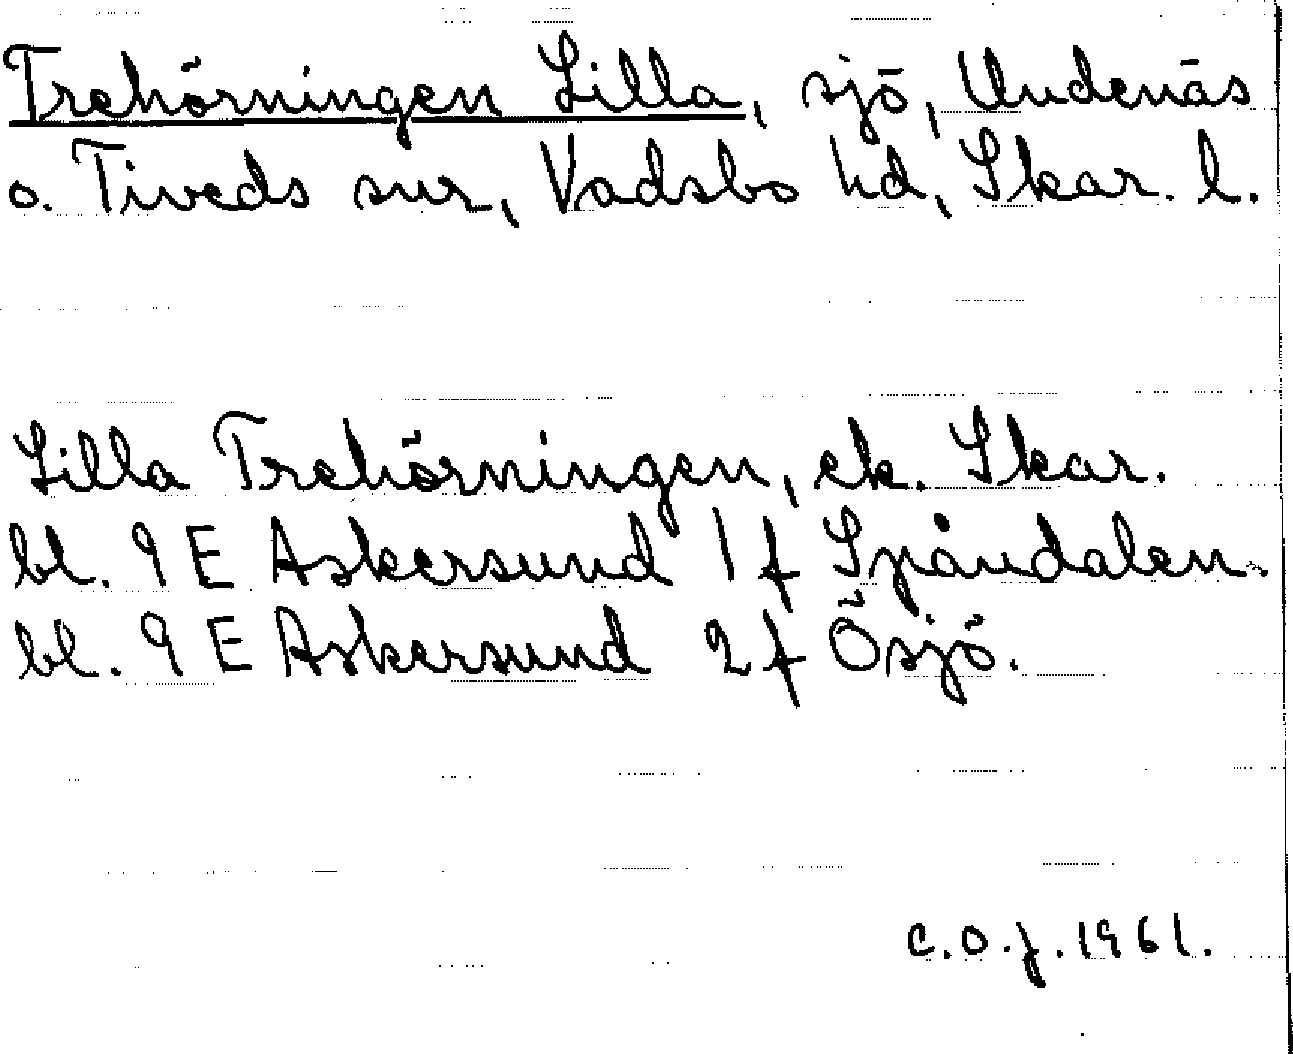 Trehörningen Lilla, sjö, Undenäs
o. Tiveds snr, Vadsbo hd, Skar. l.
Lilla Trehörningen, ek. Skar.
bl. 9 E Askersund 1 f Spåndalen.
bl. 9 E Askersund 2 f Ösjö.
C.O.J. 1961.